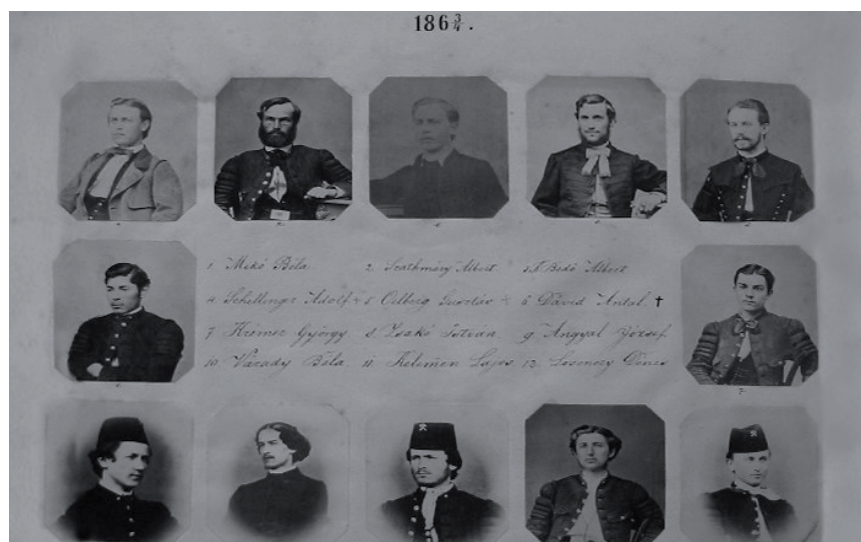 186¾.
1 Mikó Béla 2. Szathmáry Albert 3. Bedő Albert
4 Schillinger Adolf 5 Oelberg Gusztáv 6 Dávid Antal †
7 Krémer György 8 Zsakó István 9 Angyal József
10 Várady Béla 11 Kelemen Lajos 12 Dénes